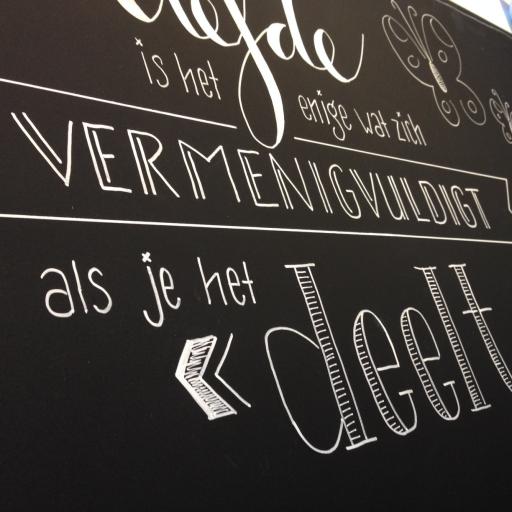 liefde
is het
enige wat zich
VERMENIGVULDIGT
als je het
deelt